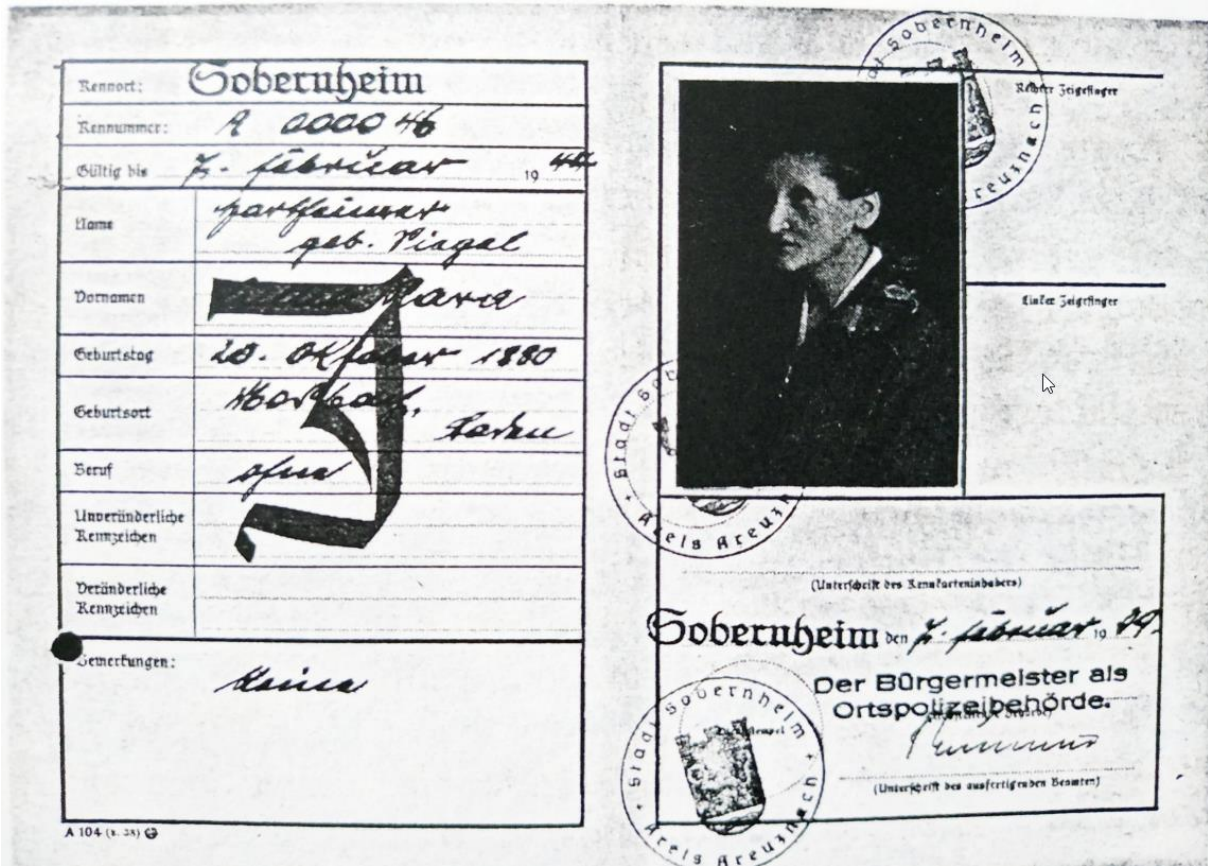 Kennort: Sobernheim
Kennummer: A 000046
Gültig bis 7. Februar 19 44
Name
Hartheimer
geb. Vi
Vornamen Klara
Geburtstag 20. Oktober 1880
Geburtsort
Baden
Beruf ohne
Unveränderliche
Kennzeichen
Veränderliche
Kennzeichen
Bemerkungen: Keine
J
A 104 (8. 38)
Stadt Sobernheim
Kreis Kreuznach
Rechter Zeigefinger
Linker Zeigefinger
Stadt Sobernheim
Kreis Kreuznach
(Unterschrift des Kennkarteninhabers)
Sobernheim den 7. Februar 19 39.
Der Bürgermeister als
Ortspolizeibehörde.
Stadt Sobernheim
Kreis Kreuznach
(Unterschrift des ausfertigenden Beamten)